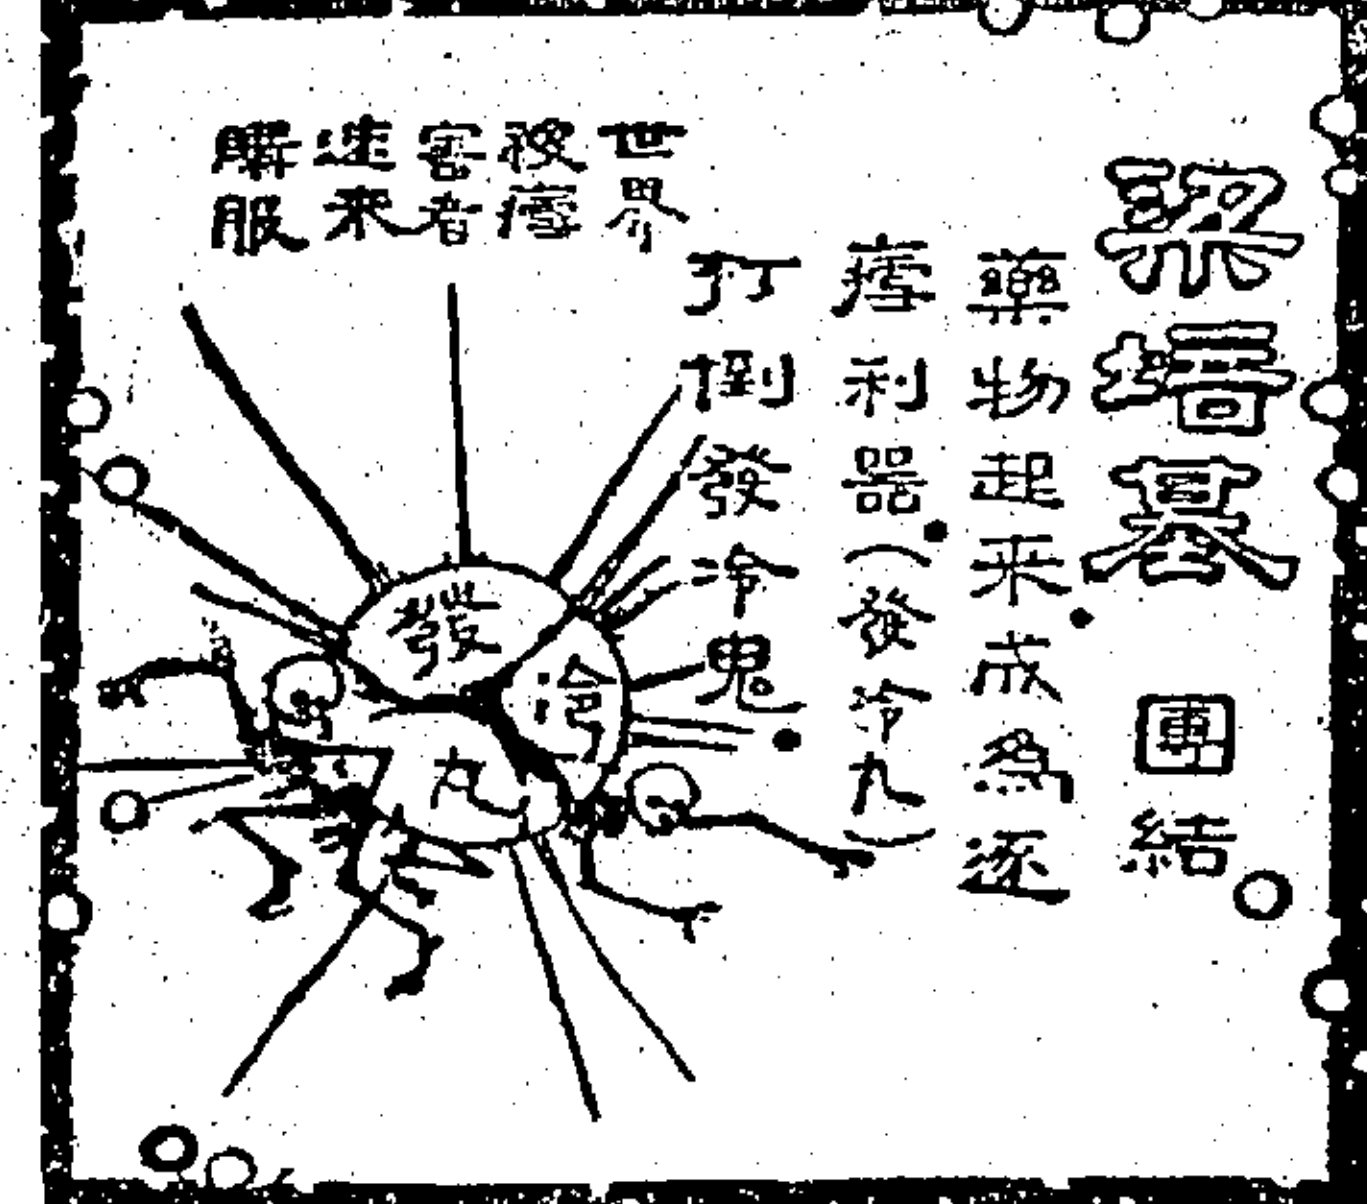 梁培基 團結
藥物起来成為逐
瘧利器(發冷九)
打倒發冷鬼
世界
被瘧
害者
速来
購服
發
冷
丸